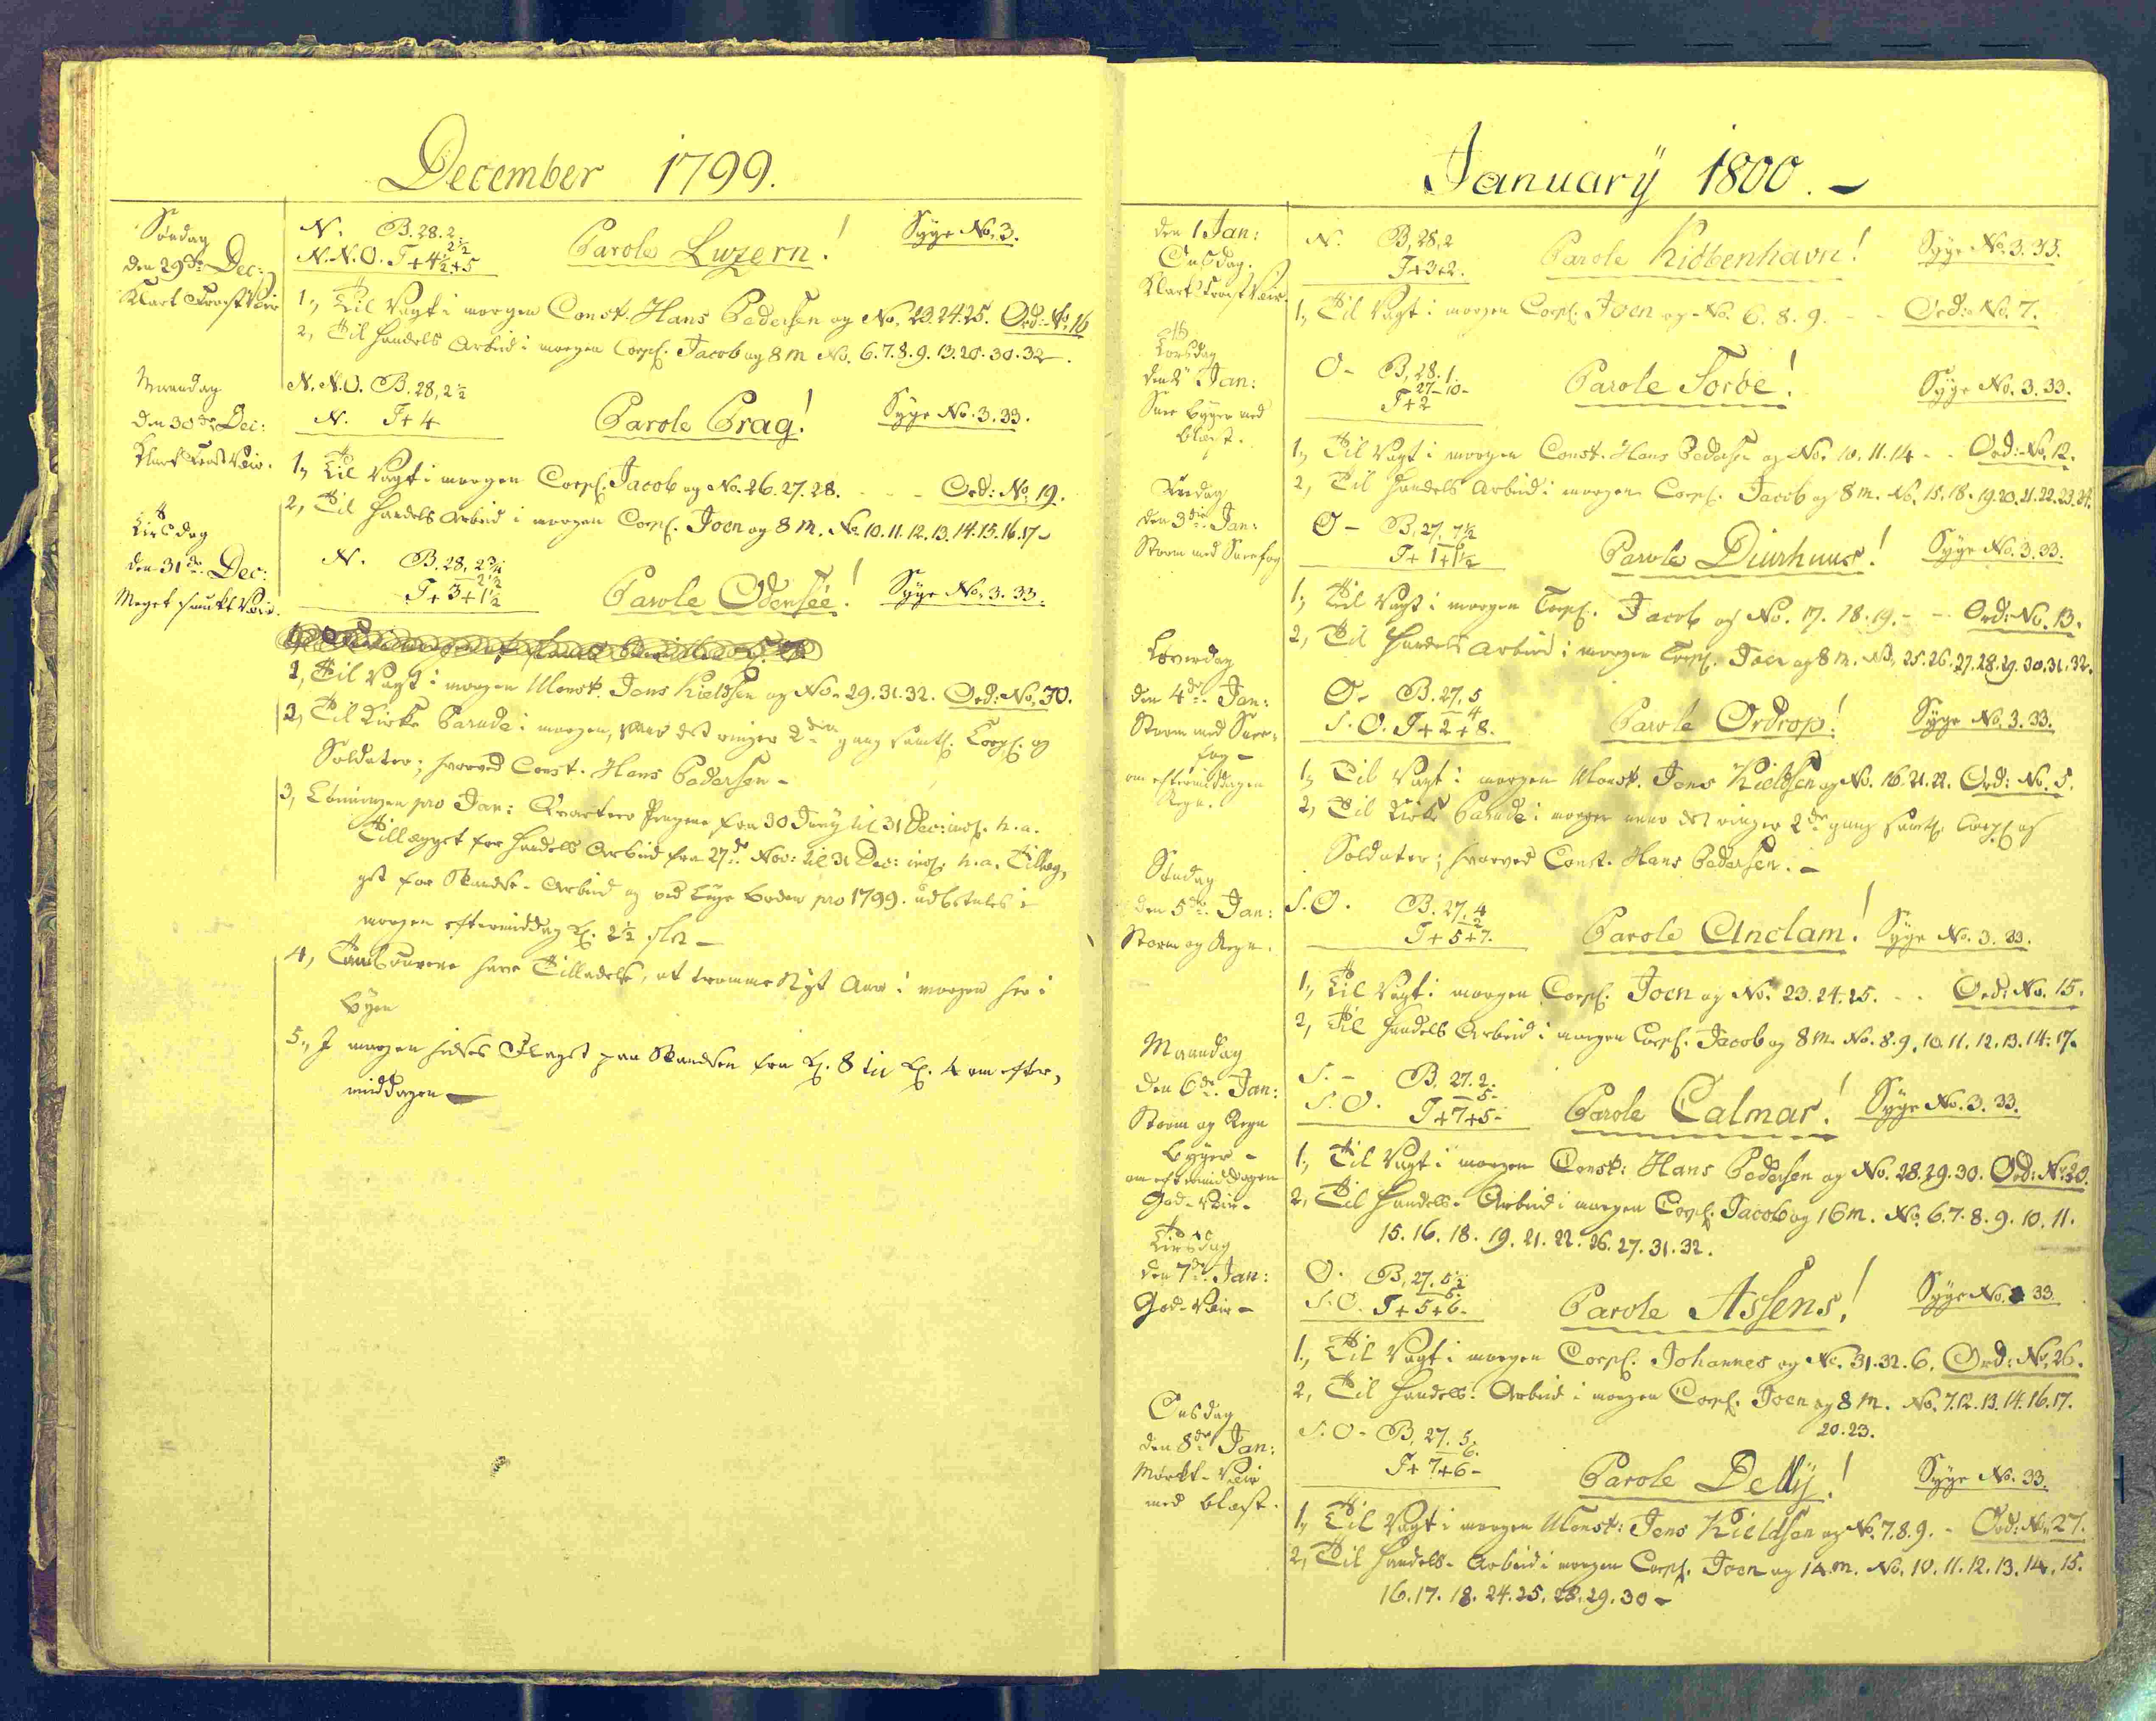 December 1799.
Søndag
den 29de Dec:
Klart Frost Veir
N. B. 28. 2.
2½
N. N. O. T+4½+5
Parole Luzern!
Syge No. 3.
1, Til Vagt i morgen Const. Hans Pedersen og No. 23. 24. 25. Ord: No. 16
2, Til Handels Arbeid i morgen Corpl. Jacob og 8 m No. 6. 7. 8. 9. 13. 20. 30. 32.
Maandag
den 30de Dec:
Klart Frost Veir.
N. N. O. B. 28, 2½
N. T+4
Parole Prag!
Syge No. 3. 33.
1, Til Vagt i morgen Corpl. Jacob og No. 26. 27. 28. - - Ord: No. 19.
2, Til Handels Arbeid i morgen Corpl. Joen og 8 m. No 10. 11. 12. 13. 14. 15. 16. 17-
Tirsdag
den 31de Dec:
Meget smukt Veir.
N. B. 28, 2¾
2½
T+3+1½
Parole Odensée!
Syge No. 3. 33.
1, Til Vagt i morgen UConst. Jens Kieldsen og No. 29. 31. 32. Ord: No. 30.
2, Til Kirke Parade i morgen, naar det ringer 2den gang samtl. Corpl. og
Soldater; hvorved Const. Hans Pedersen -
3, Lønningen pro Jan: Qvarteer Pengene fra 30 Juny til 31 Dec: incl. h. a.
Tillægget for Handels Arbeid fra 27de Nov: til 31 Dec: incl. h. a. Tillæg,
get for Skandse-Arbeid og ved Krye boden pro 1799. udbetales i
morgen eftermiddag Kl. 2½ slet -
4, Tambourerne have Tilladelse, at tromme Nyt Aar i morgen her i
Byen
5, I morgen heises Flaget paa Skandsen fra Kl. 8 til Kl. 4 om efter,
middagen -
Januarÿ 1800. -
den 1 Jan:
Onsdag.
Klart Frost Veir
N. B, 28, 2
T+3+2.
Parole Kiøbenhavn!
Syge No. 3. 33.
1, Til Vagt i morgen Corpl: Joen og No. 6. 8. 9. - - Ord: No. 7.
Torsdag
den 2 Jan:
Snee byger med
blæst.
O- B, 28. 1.
27-10-
T+2
Parole Soröe!
Syge No. 3. 33.
1, Til Vagt i morgen Const. Hans Pedersen og No. 10. 11. 14 - - Ord: No. 12.
2, Til Handels Arbeid i morgen Corpl. Jacob og 8 m. No. 15. 18. 19. 20. 21. 22. 23. 24.
Fredag
den 3die Jan:
Storm med Sneefog
O- B, 27, 7½
6
T+1+1½
Parole Diurhuus!
Syge No. 3. 33.
1, Til Vagt i morgen Corpl. Jacob og No. 17. 18. 19. - - Ord: No. 13.
2, Til Handels Arbeid i morgen Corpl. Joen og 8 m. No. 25. 26. 27. 28. 29. 30. 31. 32.
Løverdag
den 4de Jan:
Storm med Snee-
fog -
om eftermiddagen
Regn.
O- B. 27, 5
4
S. O. T+2+8.
Parole Ordrop!
Syge No. 3. 33.
1, Til Vagt i morgen UConst. Jens Kieldsen og No. 16. 21. 22. Ord: No. 5.
2, Til Kirke Parade i morgen naar det ringer 2de gang samtl. Corpl. og
Soldater; hvorved Const. Hans Pedersen. -
Søndag
den 5te Jan:
Storm og Regn.
S. O. B. 27, 4
2
T+5+7.
Parole Anclam!
Syge No. 3. 33.
1, Til Vagt i morgen Corpl. Joen og No. 23. 24. 25. - - Ord: No. 15.
2, Til Handels Arbeid i morgen Corpl. Jacob og 8 m. No. 8. 9. 10. 11. 12. 13. 14. 17.
Maandag
den 6te Jan:
Storm og Regn
byger -
om eftermiddagen
God-Veir-
S. - B. 27. 2.
5-
S. O. T+7+5-
Parole Calmar!
Syge No. 3. 33.
1, Til Vagt i morgen Const: Hans Pedersen og No. 28. 29. 30. Ord: No. 20.
2, Til Handels-Arbeid i morgen Corpl. Jacob og 16 m. No. 6. 7. 8. 9. 10. 11.
15. 16. 18. 19. 21. 22. 26. 27. 31. 32.
Tirsdag
den 7de Jan:
God-Veir-
O. B, 27. 5½
6.
S. O. T+5+6-
Parole Assens!
Syge No. 33
1, Til Vagt i morgen Corpl. Johannes og No. 31. 32. 6. Ord: No. 26.
2, Til Handels-Arbeid i morgen Corpl. Joen og 8 m. No. 7. 12. 13. 14. 16. 17.
20. 23.
Onsdag
den 8de Jan:
Mørkt-Veir
med blæst.
S. O- B, 27. 5.
6.
T+7+6-
Parole Delly!
Syge No. 33.
1, Til Vagt i morgen UConst: Jens Kieldsen og No. 7. 8. 9. - Ord: No. 27.
2, Til Handels-Arbeid i morgen Corpl. Joen og 14 m. No. 10. 11. 12. 13. 14. 15.
16. 17. 18. 24. 25. 28. 29. 30 -